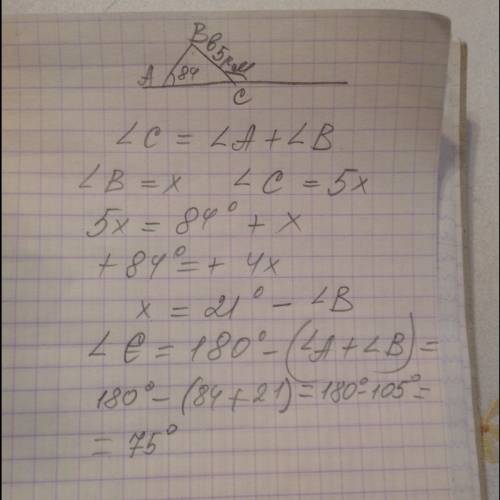 B
A 84 C
∠C = ∠A + ∠B
∠B = x ∠C = 5x
5x = 84° + x
+ 84° = + 4x
x = 21° - ∠B
∠C = 180° - (∠A + ∠B) =
180° - (84 + 21) = 180° - 105° =
= 75°